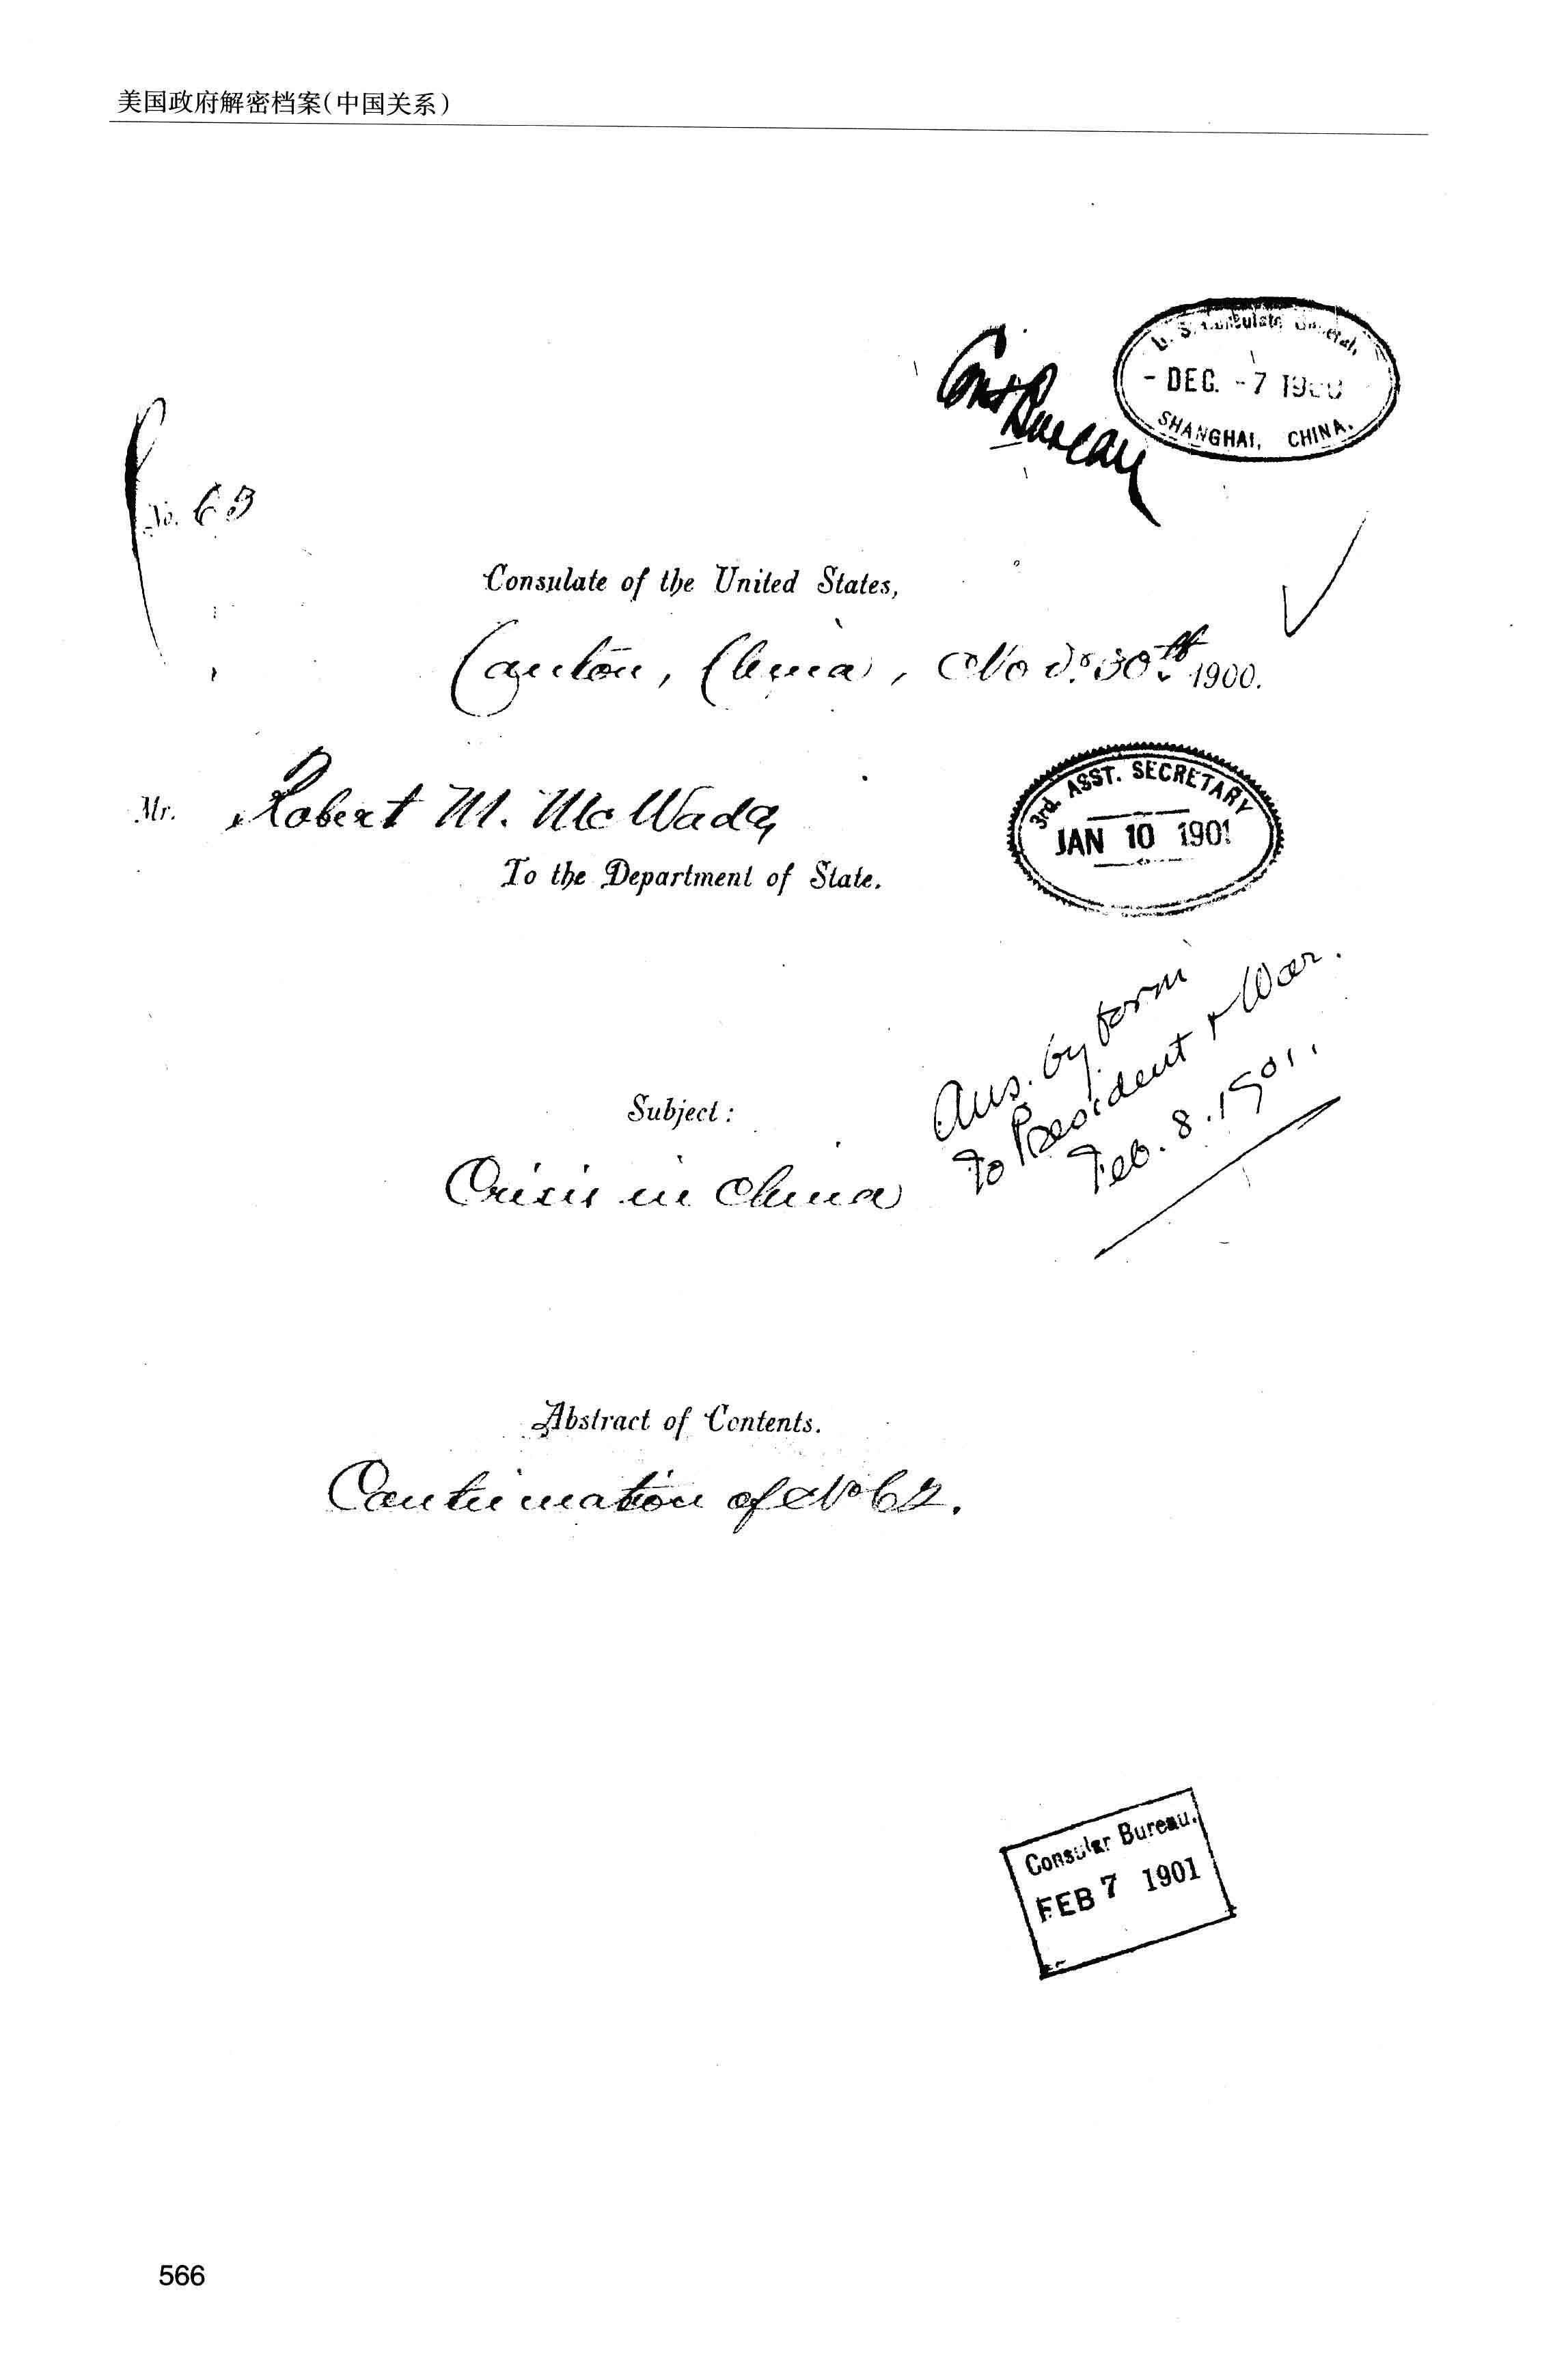 美国政府解密档案(中国关系)
U. S. Consulate General,
- DEC. -7 1900
SHANGHAI, CHINA.
Cons Bureau
No. 63
Consulate of the United States,
Canton, China, Nov. 30th 1900.
Mr. Robert M. McWade
To the Department of State.
3rd. ASST. SECRETARY
JAN 10 1901
Ans. by form
to President & War.
Feb. 8. 1901.
Subject:
Crisis in China
Abstract of Contents.
of No 62.
Consular Bureau.
FEB 7 1901
566